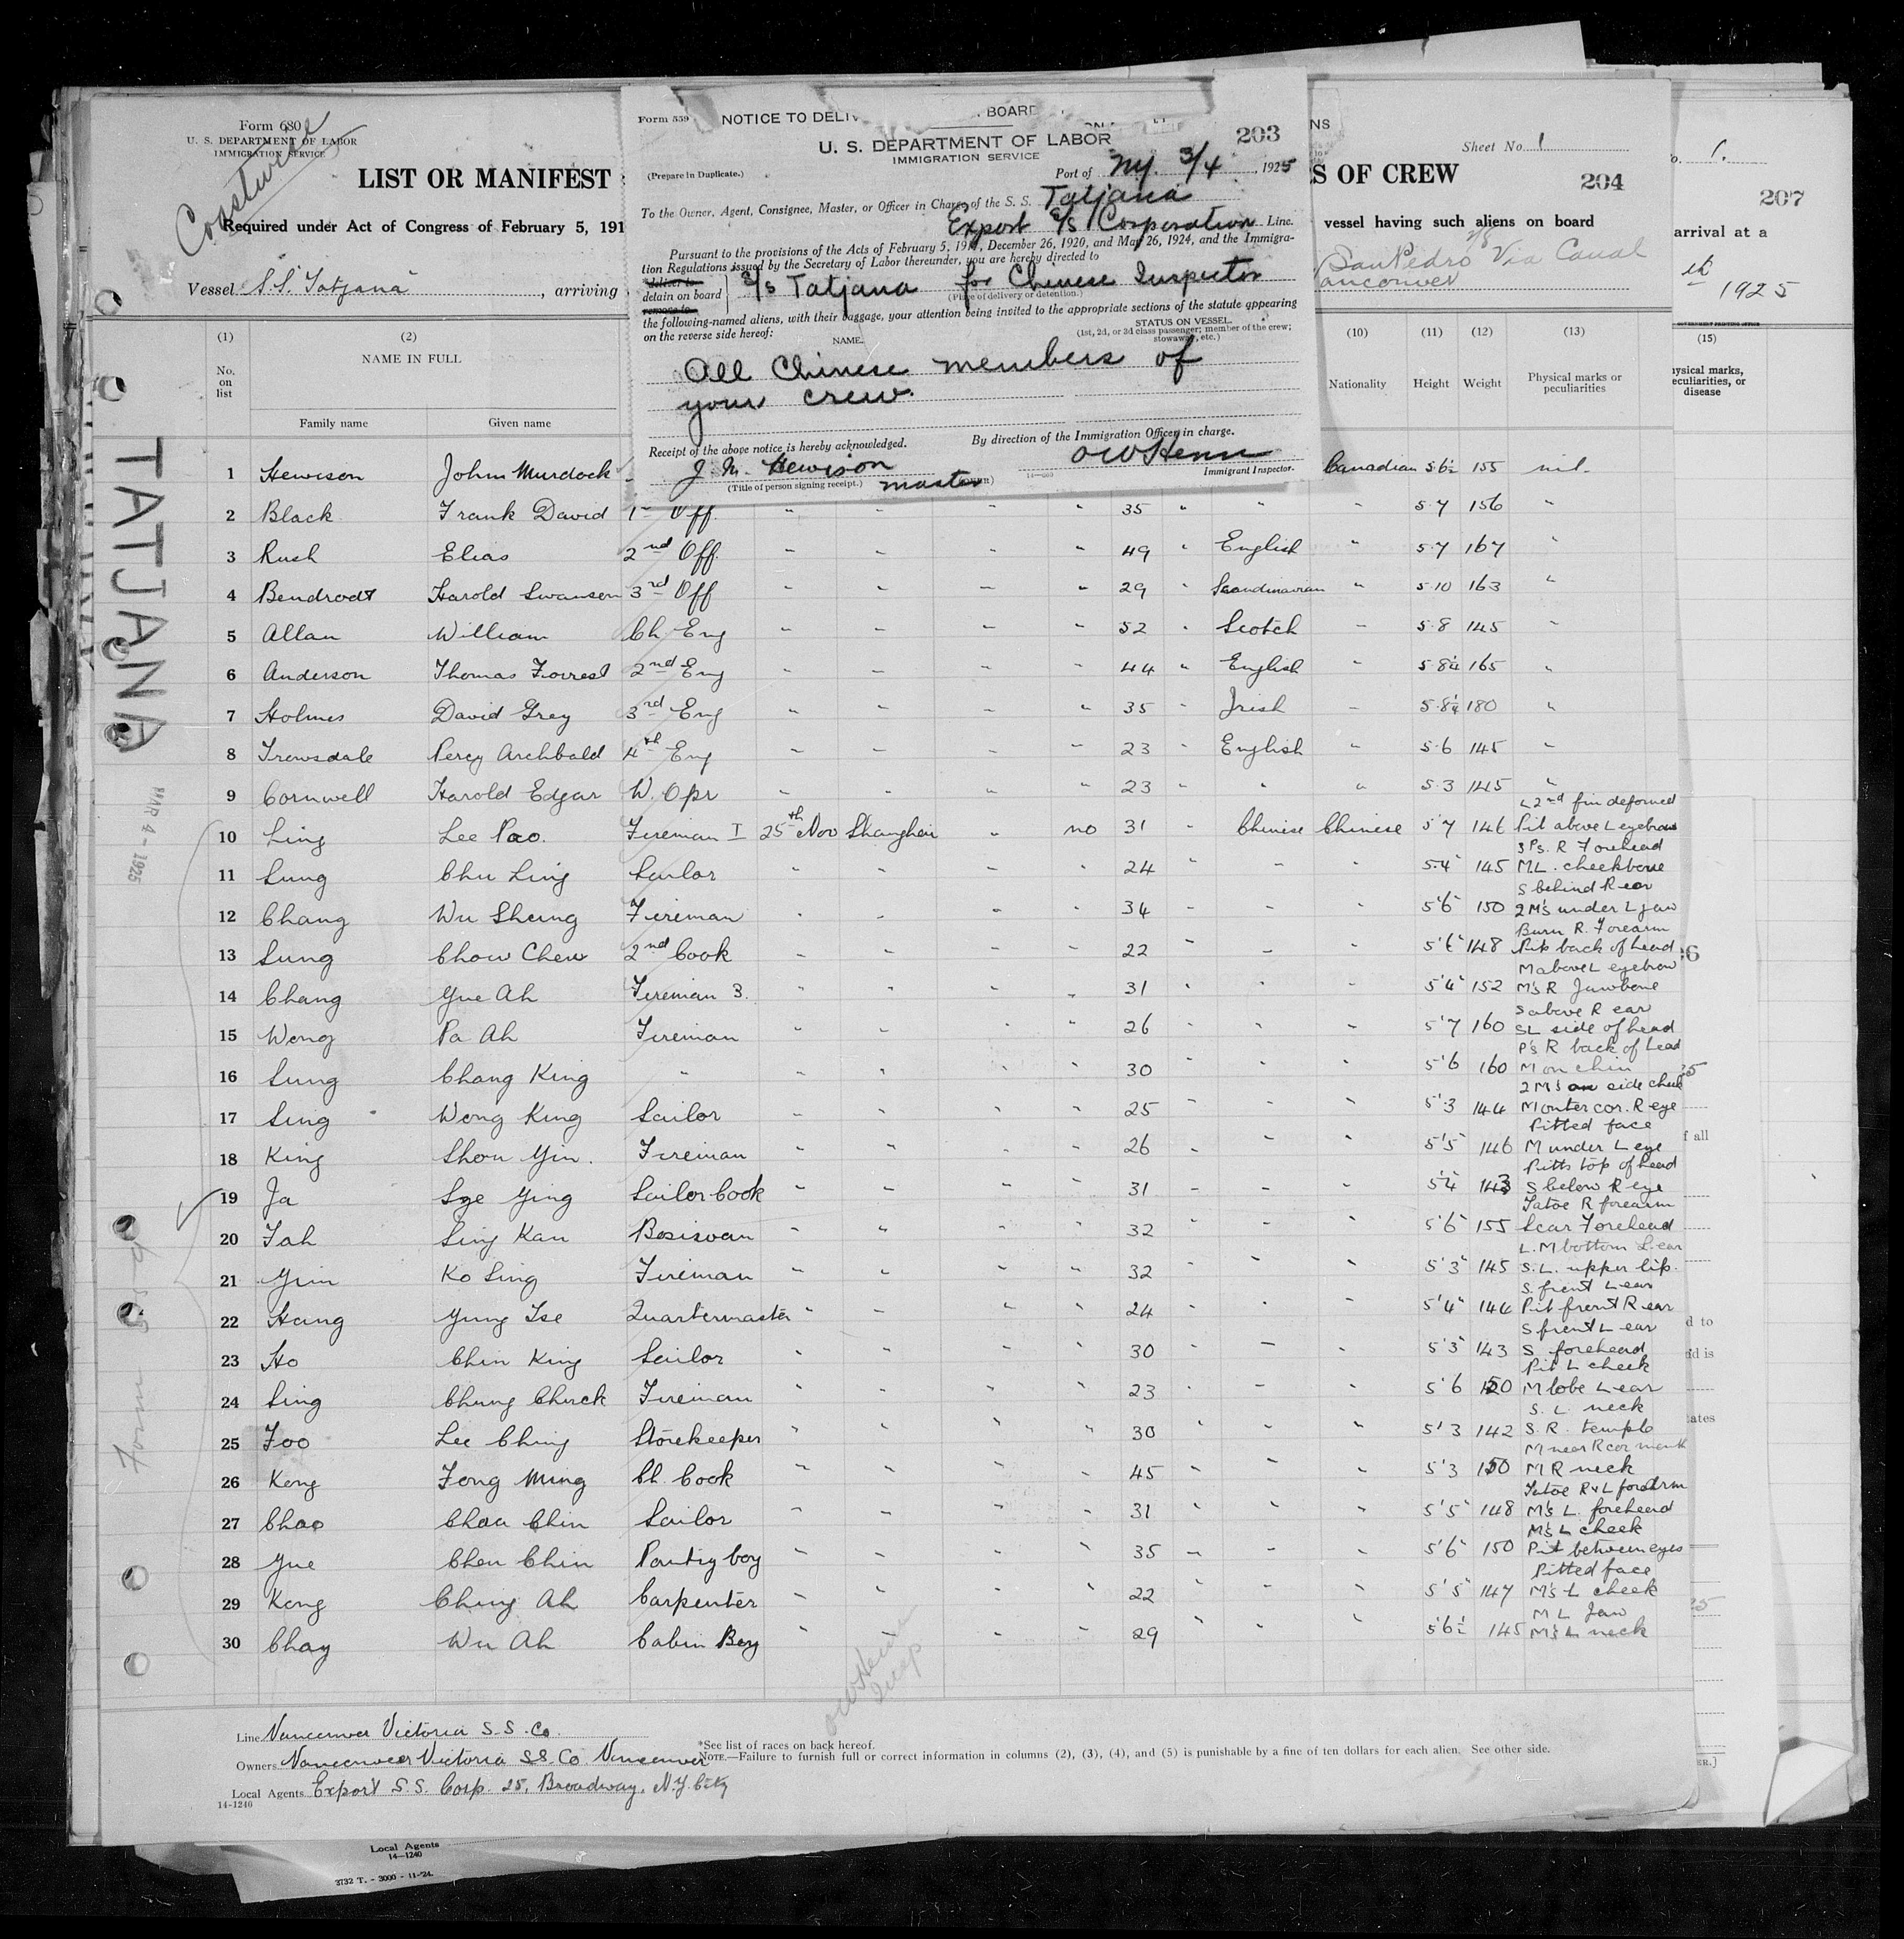 Form 680
U. S. DEPARTMENT OF LABOR
IMMIGRATION SERVICE
Coastwise
LIST OR MANIFEST
Required under Act of Congress of February 5, 191
Vessel S.S. Tatjana, arriving
Form 559 NOTICE TO DELIV BOARD
U. S. DEPARTMENT OF LABOR 203
IMMIGRATION SERVICE
(Prepare in Duplicate.)
Port of N.Y. 3/4, 1925
To the Owner, Agent, Consignee, Master, or Officer in Charge of the S. S. Tatjana
Export S/S Corporation Line.
Pursuant to the provisions of the Acts of February 5, 1917, December 26, 1920, and May 26, 1924, and the Immigra-
tion Regulations issued by the Secretary of Labor thereunder, you are hereby directed to
deliver to
detain on board S/S Tatjana for Chinese Inspector
remove to
(Place of delivery or detention.)
the following-named aliens, with their baggage, your attention being invited to the appropriate sections of the statute appearing
on the reverse side hereof:
NAME.
STATUS ON VESSEL.
(1st, 2d, or 3d class passenger; member of the crew; stowaway, etc.)
All Chinese members of
your crew.
Receipt of the above notice is hereby acknowledged.
By direction of the Immigration Officer in charge.
J. M. Hewison
(Title of person signing receipt.) master
OWHenn
Immigrant Inspector.
NS
Sheet No. 1
S OF CREW 204
vessel having such aliens on board
San Pedro Via Canal
ancouver
1.
207
arrival at a
1925
(15)
ysical marks,
eculiarities, or
disease
TATJANA
MAR 4 - 1925
(1) (2) (10) (11) (12) (13)
No. on list NAME IN FULL Nationality Height Weight Physical marks or peculiarities
Family name Given name
1 Hewison John Murdock Canadian 5.6½ 155 nil.
2 Black Frank David 1st Off. " " " " 35 " " " 5.7 156 "
3 Rush Elias 2nd Off. " " " " 49 " English " 5.7 167 "
4 Bendrodt Harold Swansen 3rd Off " " " " 29 " Scandinavian " 5.10 163 "
5 Allan William Ch Eng " " " " 52 " Scotch " 5.8 145 "
6 Anderson Thomas Forrest 2nd Eng " " " " 44 " English " 5.8¼ 165 "
7 Holmes David Grey 3rd Eng " " " " 35 " Irish " 5.8¼ 180 "
8 Trewsdale Percy Archbald 4th Eng " " " " 23 " English " 5.6 145 "
9 Cornwell Harold Edgar W. Opr " " " " 23 " " " 5.3 145 "
L 2nd fin deformed
10 Ling Lee Pao. Fireman I 25th Nov Shanghai " no 31 " Chinese Chinese 5'7 146 Pit above L eyebrow
3 Ps. R Forehead
11 Sung Chu Ling Sailor " " " " 24 " " " 5.4" 145 M.L. cheekbone
S behind R ear
12 Chang Wu Sheung Fireman " " " " 34 " " " 5'6" 150 2 M's under L jaw
Burn R. Forearm
13 Sung Chow Chew 2nd Cook " " " " 22 " " " 5'6" 148 Pits back of head
M above L eyebrow
14 Chang Yue Ah Fireman 3. " " " " 31 " " " 5'4" 152 M's R Jawbone
S above R ear
15 Wong Pa Ah Fireman " " " " 26 " " " 5'7 160 SL side of head
P's R back of head
16 Sung Chang King " " " " " 30 " " " 5'6 160 M on chin
2 M's on side cheek
17 Sing Wong King Sailor " " " " 25 " " " 5'3 144 M outer cor. R eye
Pitted face
18 King Shou Yin. Fireman " " " " 26 " " " 5'5" 146 M under L eye
Pitts top of head
19 Ja Sze Ying Sailor Cook " " " " 31 " " " 5'4 143 S below R eye
Tatoe R forearm
20 Fah Sing Kan Bosisvan " " " " 32 " " " 5'6" 155 Scar Forehead
L. M bottom L. ear
21 Yim Ko Sing Fireman " " " " 32 " " " 5'3" 145 S. L. upper lip.
S. front L ear
22 Hang Yung Tse Quartermaster " " " " 24 " " " 5'4" 146 Pit front R ear
S front L ear
23 Ho Chin King Sailor " " " " 30 " " " 5'3" 143 S. forehead
Pit L cheek
24 Sing Chung Chuck Fireman " " " " 23 " " " 5'6 150 M lobe L ear
S. L. neck
25 Foo Lee Ching Storekeeper " " " " 30 " " " 5'3 142 S. R. temple
M near R cor mouth
26 Kong Fong Ming Ch. Cook " " " " 45 " " " 5'3 150 M R neck
Tatoe R & L forearm
27 Chao Chaa Chin Sailor " " " " 31 " " " 5'5" 148 M's L. forehead
M's L cheek
28 Yue Chen Chin Pantry boy " " " " 35 " " " 5'6" 150 Pit between eyes
Pitted face
29 Kong Ching Ah Carpenter " " " " 22 " " " 5'5" 147 M's L cheek
M L Jaw
30 Chay Wu Ah Cabin Boy " " " " 29 " " " 5'6½ 145 M's L neck
OWHenn
Insp
Line Vancouver Victoria S.S. Co.
Owners Vancouver Victoria S.S. Co Vancouver
Local Agents Export S.S. Corp. 25, Broadway, N.Y. City
14-1240
*See list of races on back hereof.
NOTE.—Failure to furnish full or correct information in columns (2), (3), (4), and (5) is punishable by a fine of ten dollars for each alien. See other side.
Local Agents
14-1240
3732 T. - 3000 - 11-'24.